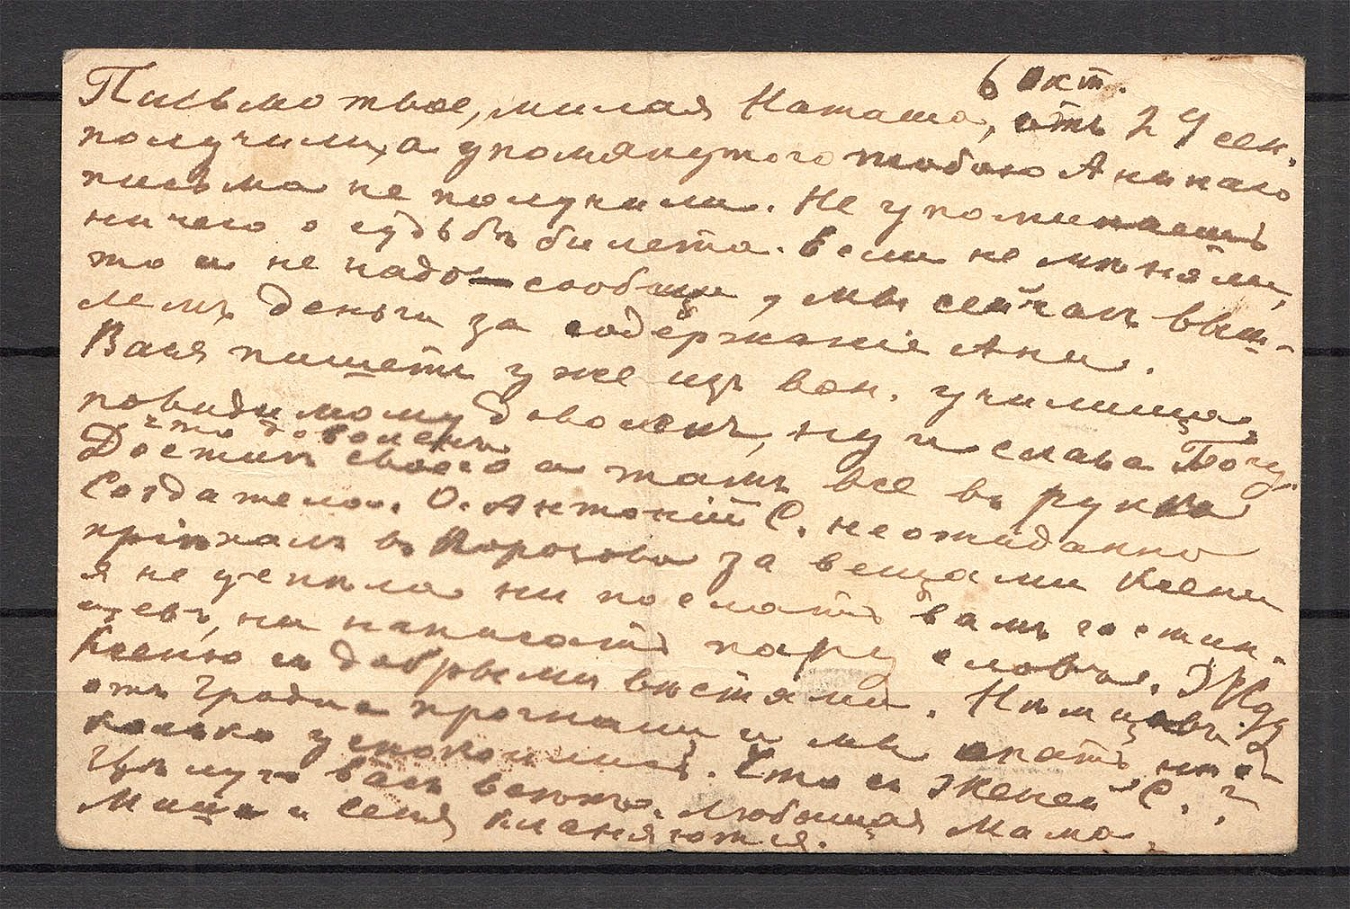 6 окт.
Письмо твое, милая Наташа, отъ 29 сен.
получили, а упомянутого тобою Анинаго
письма не получили. Не упоминаешь
ничего о судьбѣ билета. Если не мѣняли,
то и не надо сообщи, мы сейчасъ выш-
лемъ деньги за содержаніе Ани.
Вася пишетъ уже изъ воен. училища,
повидимому доволенъ, ну и слава Богу,
что доволенъ
Достигъ своего а тамъ все въ рукахъ
Создателя. О. Антоній С. неожиданно
пріѣхалъ въ за вещами Ксени
я не успѣла ни послать вамъ гостин-
цевъ, ни написать пару словъ. Жду
Ксеню съ добрыми вѣстями. Нѣмцевъ
отъ Гродна прогнали и мы опять нѣс-
колько успокоились. Что съ Женей С.?
Цѣлую васъ всѣхъ. Любящая Мама
Миша и Сеня кланяются.